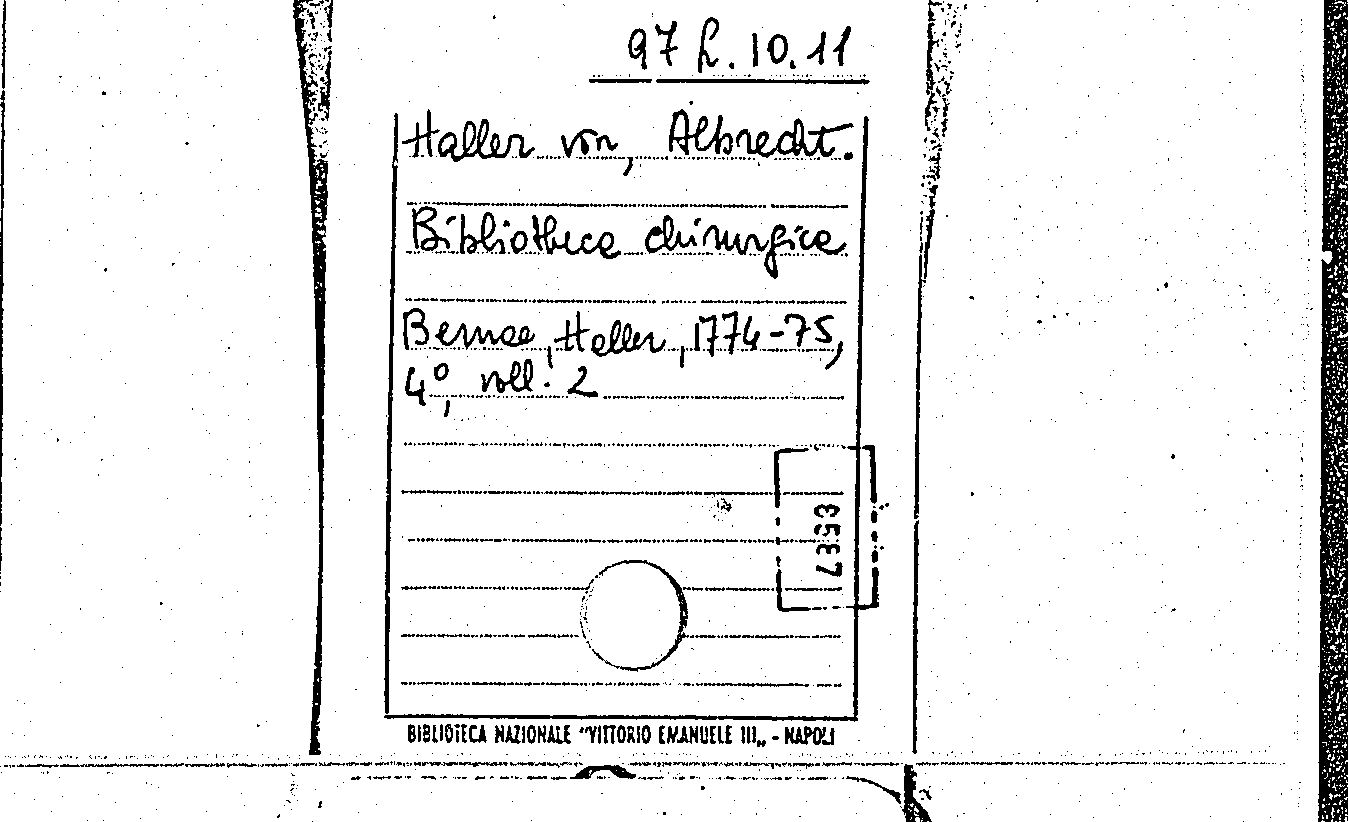 97 L. 10. 11
Haller von, Albrecht.
Bibliotheca chirurgica
Bernae, Haller, 1774-75,
4°, voll. 2
BIBLIOTECA NAZIONALE "VITTORIO EMANUELE III„ - NAPOLI